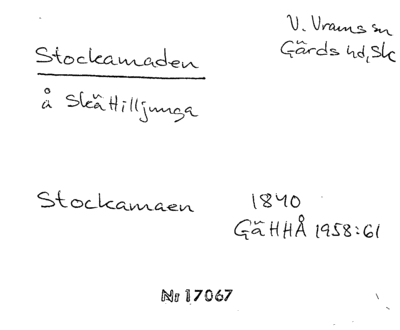 V. Vrams sn
Gärds hd, Sk
Stockamaden
å Skättilljunga
Stockamaen 1840
GäHHÅ 1958:61
Nr 17067